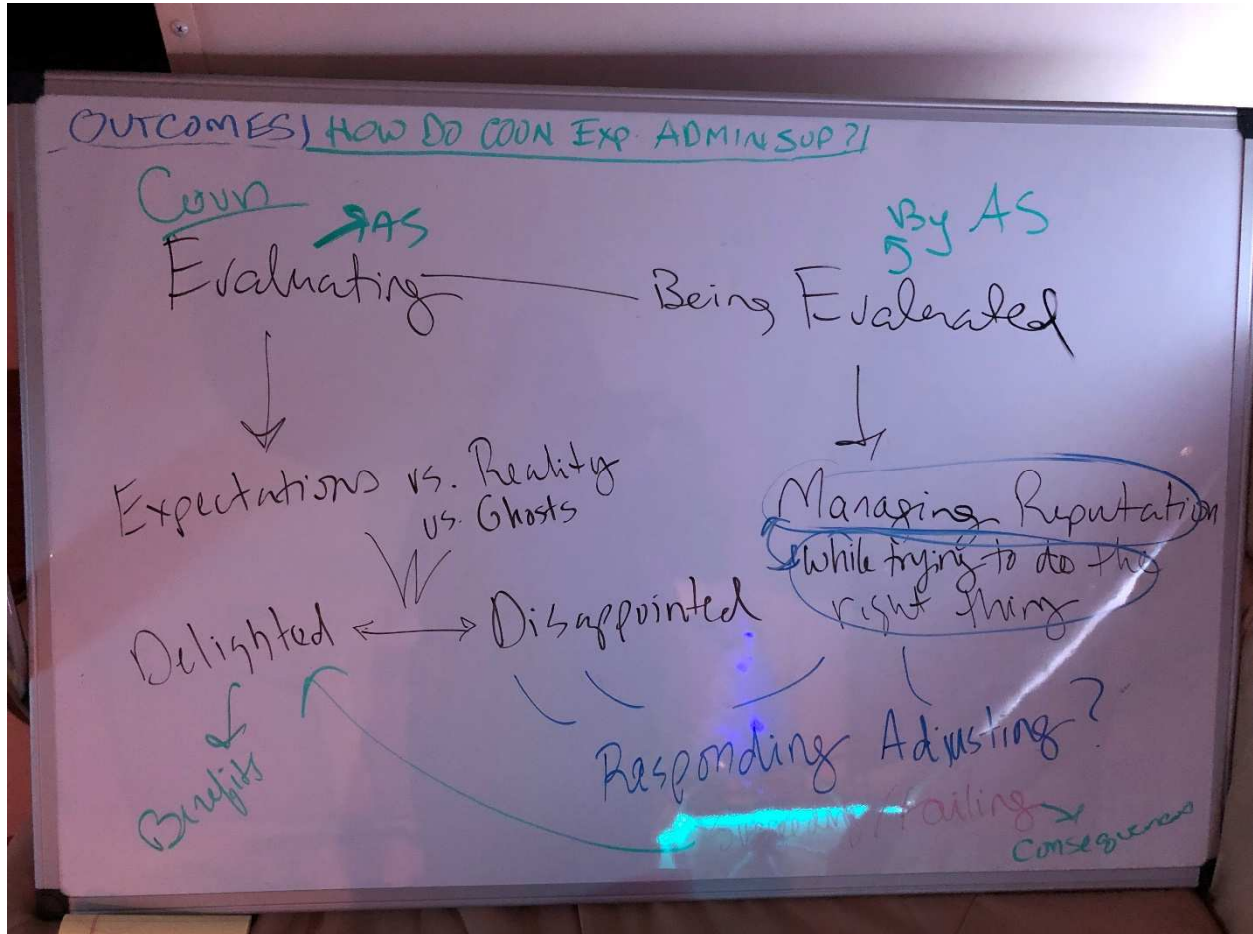 OUTCOMES) HOW DO COUN EXP. ADMIN SUP?/
Coun
AS
By AS
Evaluating
Being Evaluated
Expectations vs. Reality
vs. Ghosts
Managing Reputation
while trying to do the
right thing
Delighted
Disappointed
Benefits
Responding Adjusting?
/Failing
Consequences